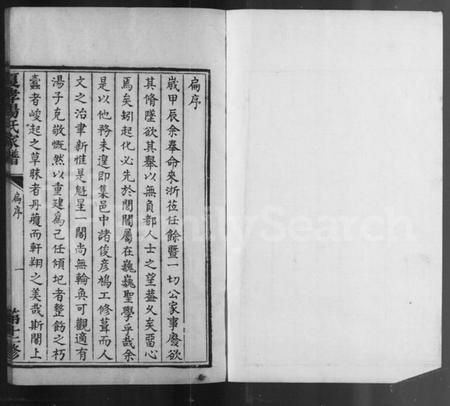 扁序
歲甲辰余奉命來浙莅任餘暨一切公家事廢欲
其脩墜欲其舉以無負都人士之望葢乆矣惡心
焉矣矧起化必先於閭閻屬在巍巍聖學乎哉余
是以他務未遑即集邑中諸俊彦鳩工修葺而人
文之治聿新惟是魁星一閣尚無輪奐可觀適有
湯子克敬慨然以重建為己任傾圮者整飭之朽
蠹者峻起之草昧者丹雘而軒翔之美哉斯閣上
夏孝湯氏家譜
扁序
一
第十二修
FamilySearch